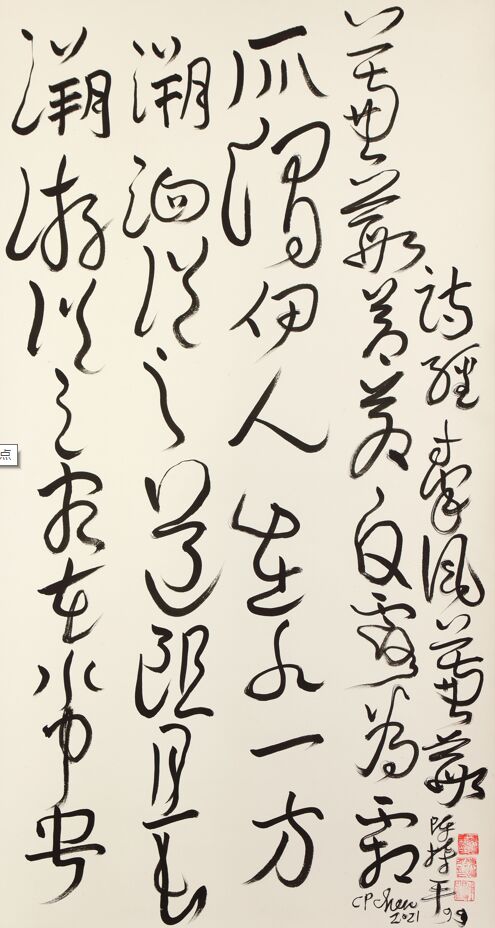 詩經秦風蒹葭
蒹葭蒼蒼白露為霜
所謂伊人在水一方
溯洄從之道阻且長
溯游從之宛在水中央
CP Chen
2021
99
点